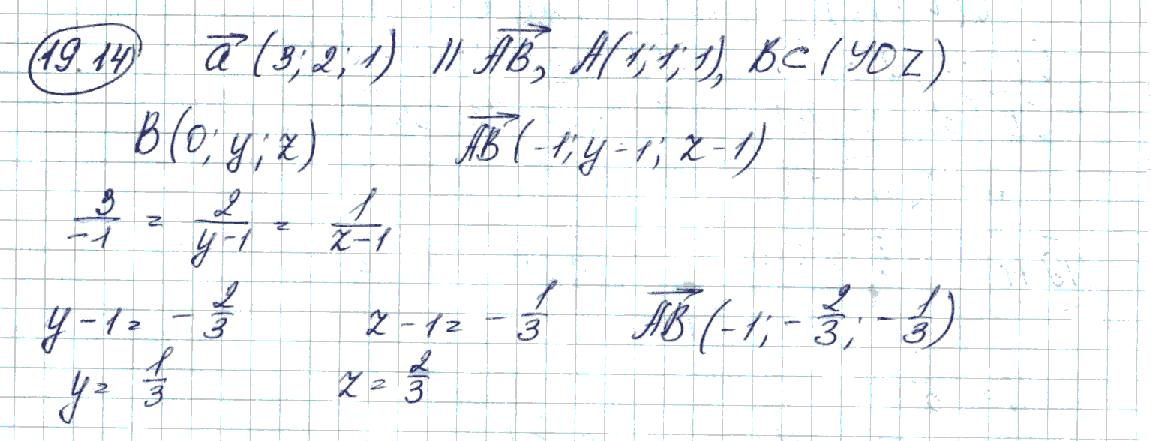 19.14 a⃗ (3; 2; 1) || AB⃗, A(1; 1; 1), B ⊂ (YOZ)
B(0; y; z) AB⃗ (-1; y-1; z-1)
3/-1 = 2/y-1 = 1/z-1
y-1 = -2/3 z-1 = -1/3 AB⃗ (-1; -2/3; -1/3)
y = 1/3 z = 2/3